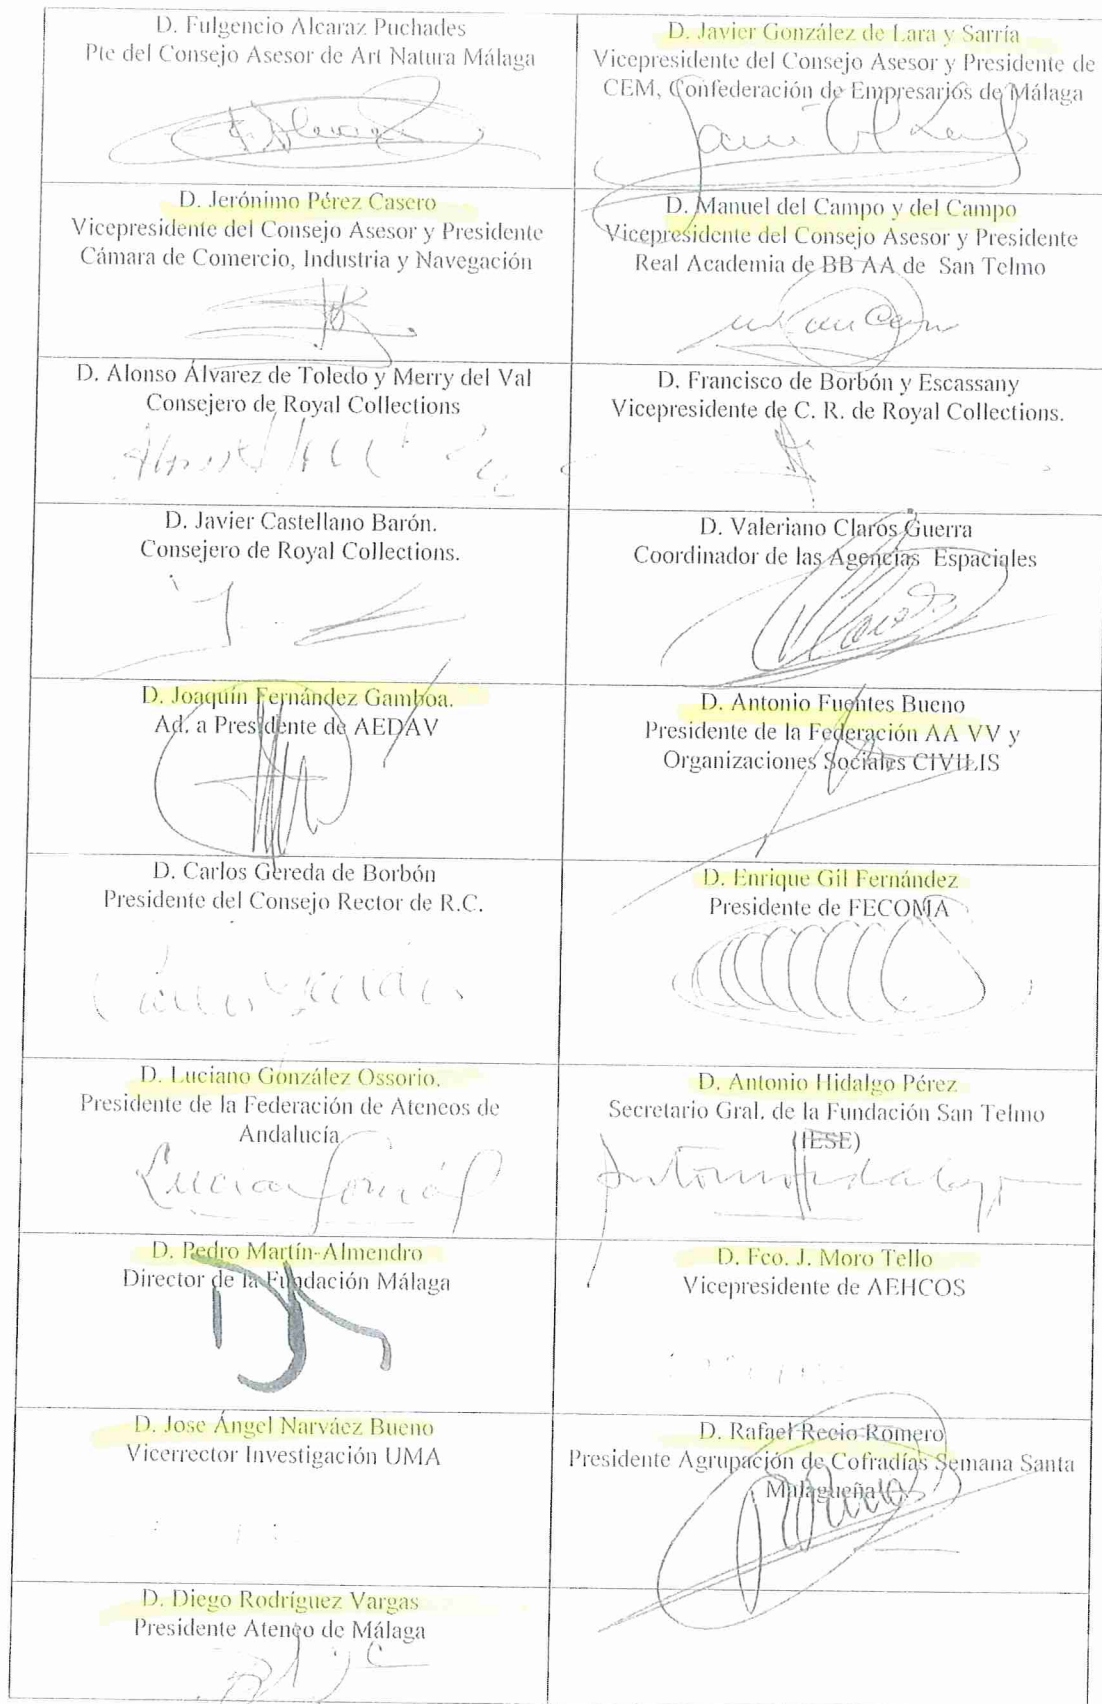 D. Fulgencio Alcaraz Puchades
Pte del Consejo Asesor de Art Natura Málaga
D. Javier González de Lara y Sarria
Vicepresidente del Consejo Asesor y Presidente de
CEM, Confederación de Empresarios de Málaga
D. Jerónimo Pérez Casero
Vicepresidente del Consejo Asesor y Presidente
Cámara de Comercio, Industria y Navegación
D. Manuel del Campo y del Campo
Vicepresidente del Consejo Asesor y Presidente
Real Academia de BB AA de San Telmo
D. Alonso Álvarez de Toledo y Merry del Val
Consejero de Royal Collections
D. Francisco de Borbón y Escassany
Vicepresidente de C. R. de Royal Collections.
D. Javier Castellano Barón.
Consejero de Royal Collections.
D. Valeriano Claros Guerra
Coordinador de las Agencias Espaciales
D. Joaquín Fernández Gamboa.
Ad. a Presidente de AEDAV
D. Antonio Fuentes Bueno
Presidente de la Federación AA VV y
Organizaciones Sociales CIVILIS
D. Carlos Gereda de Borbón
Presidente del Consejo Rector de R.C.
D. Enrique Gil Fernández
Presidente de FECOMA
D. Luciano González Ossorio.
Presidente de la Federación de Ateneos de
Andalucía
Luciano
D. Antonio Hidalgo Pérez
Secretario Gral. de la Fundación San Telmo
(IESE)
Antonio Hidalgo
D. Pedro Martín-Almendro
Director de la Fundación Málaga
D. Fco. J. Moro Tello
Vicepresidente de AEHCOS
D. Jose Ángel Narváez Bueno
Vicerrector Investigación UMA
D. Rafael Recio Romero
Presidente Agrupación de Cofradías Semana Santa
Malagueña
D. Diego Rodríguez Vargas
Presidente Ateneo de Málaga